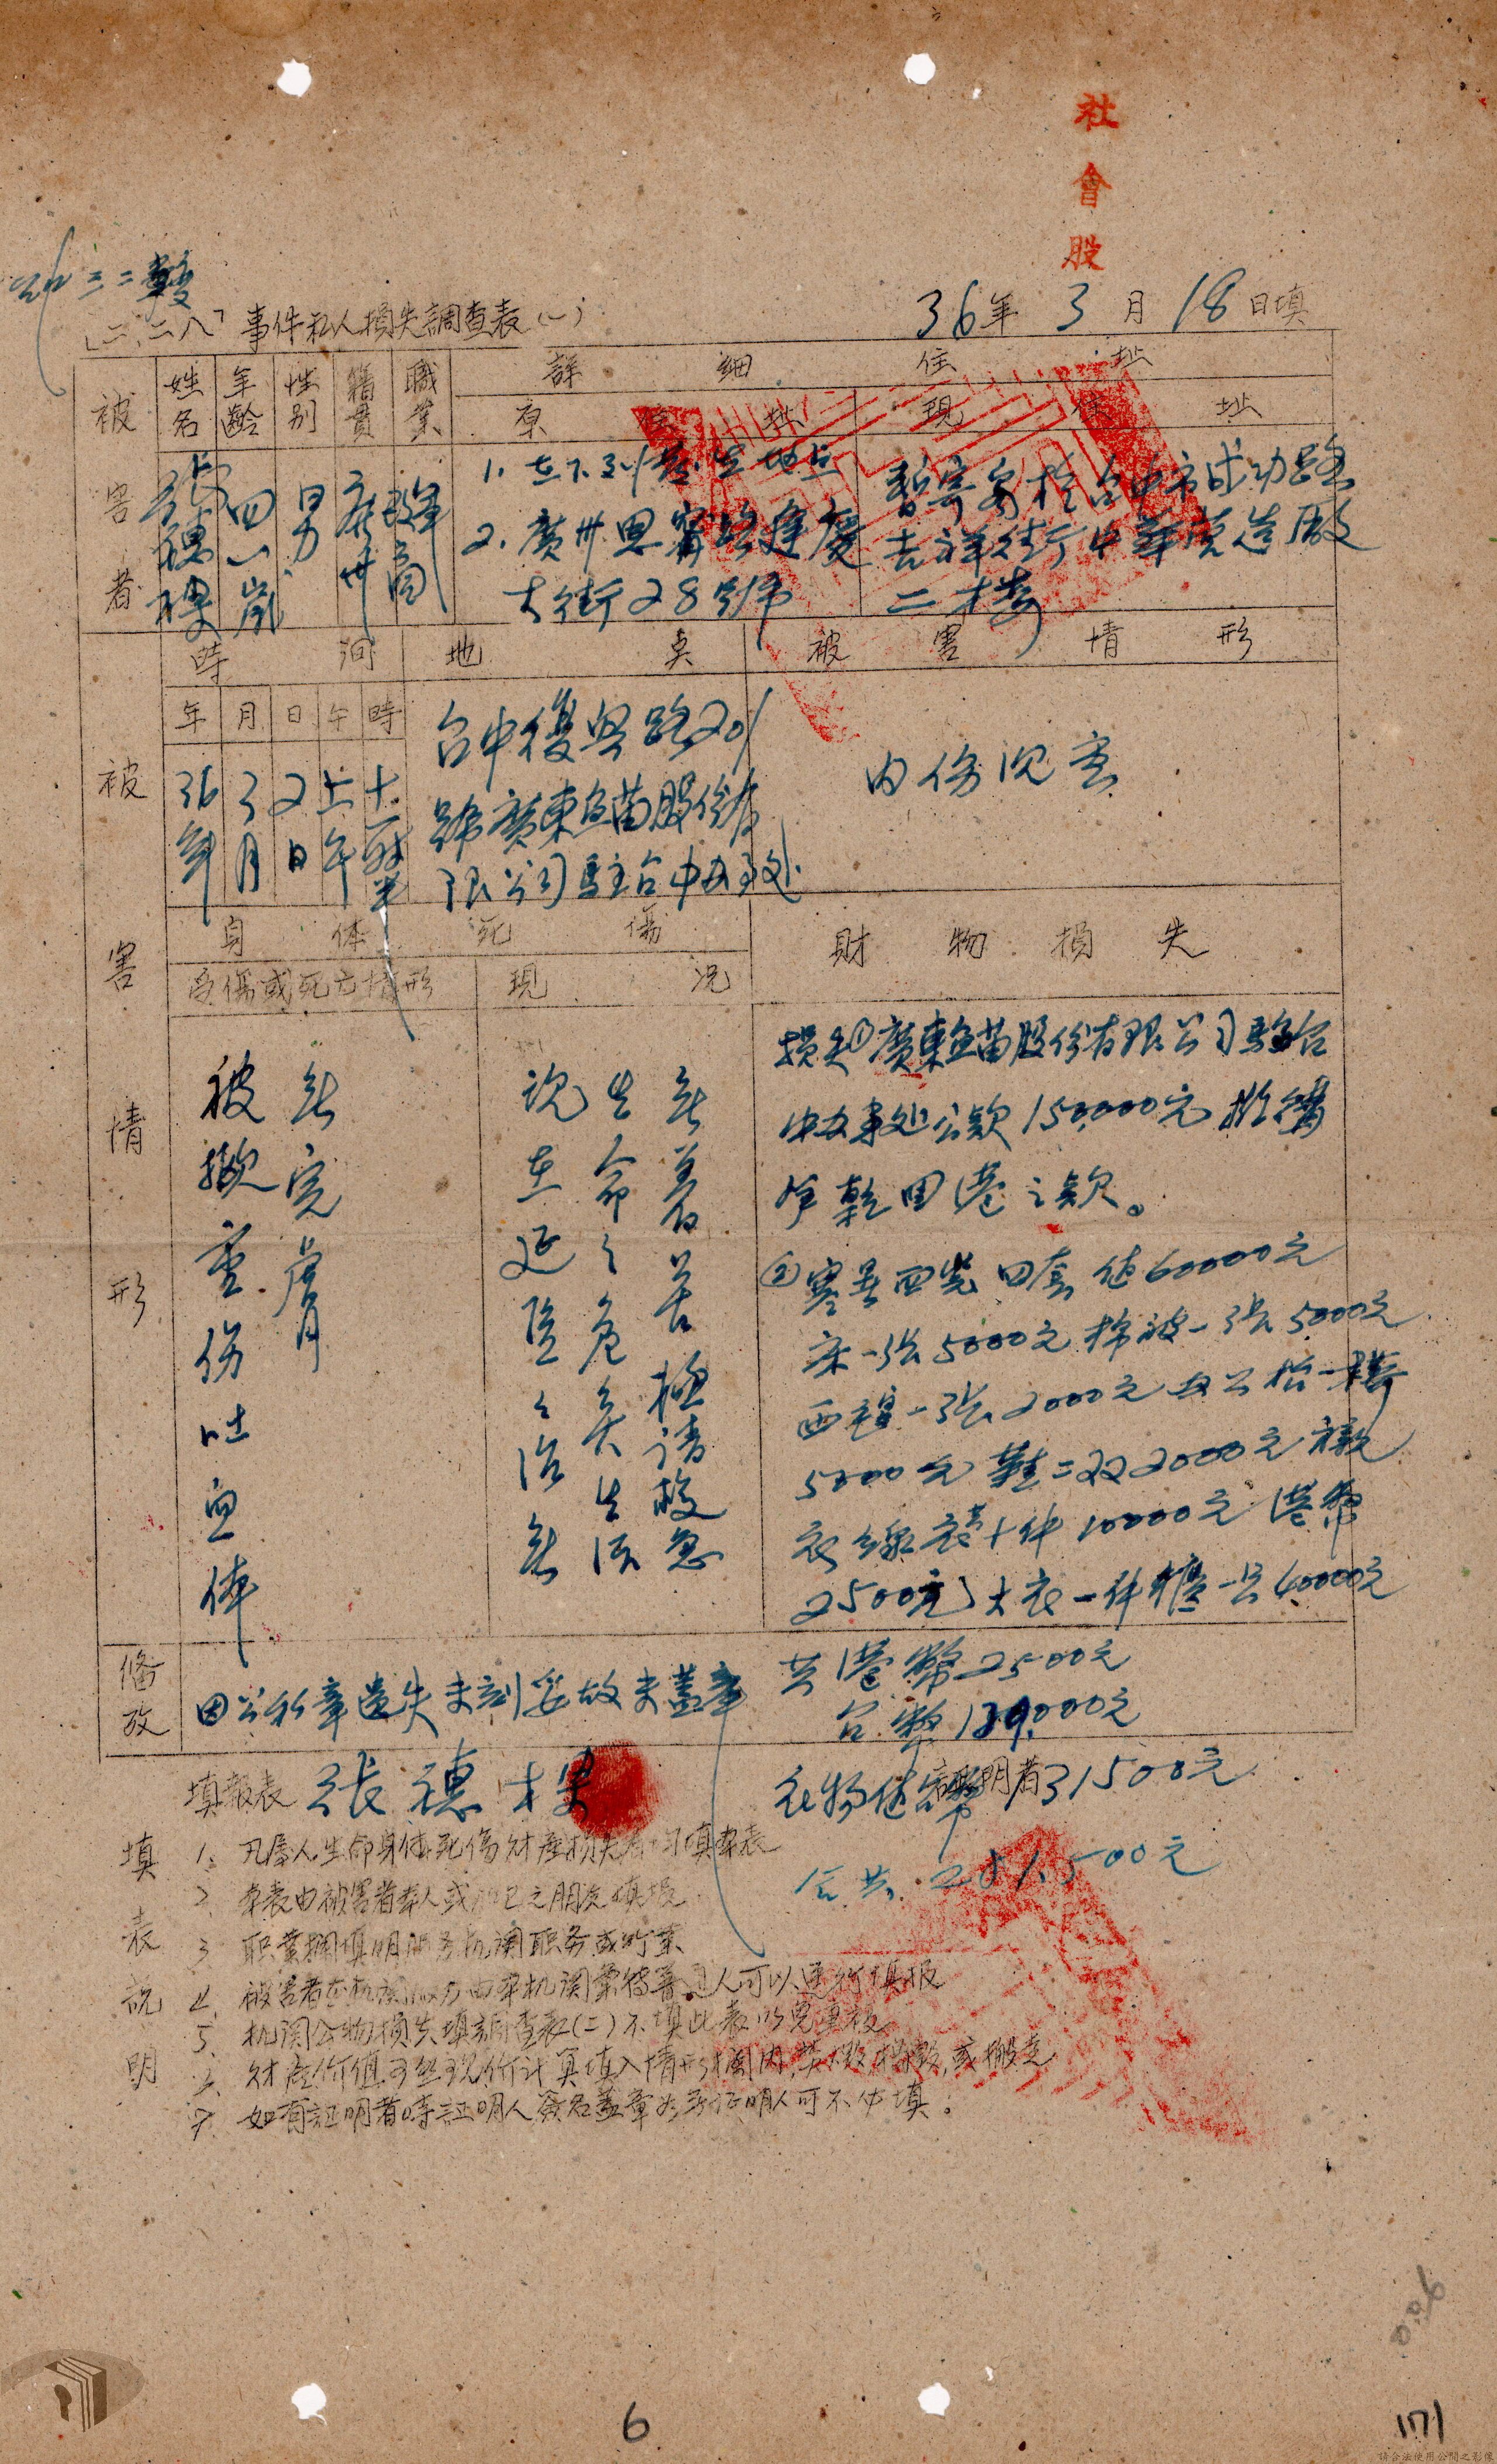 社會股
「二、二八」事件私人損失調查表(一)
36年3月18日填
被害者
姓名
年齡
性別
籍貫
職業
詳細住址
原住址
現住址
四一歲
男
廣州
商
1.在下列發生地点
2.廣州恩寧路逢慶
大街28號
暫寄寓於台中市成功路
吉祥街中華營造廠
二樓
被害情形
時間
地點
被害情形
年
月
日
午
時
36年
3月
2日
上午
十一時半
台中復興路201
號廣東魚苗股份有
限公司駐台中办事处
內傷沉重
身体死傷
財物損失
受傷或死亡情形
現況
被毆重傷吐血体
無完膚
現在延医々治無
生命之危矣生活
無着苦極請救急
損失①廣東魚苗股份有限公司駐台
中办事処公款150,000元
回港之款。
②寒暑西裝四套值60000元
床一張5000元棉被一張5000元
西氈一張2000元
5000元鞋二双2000元
十件10000元港幣
2500元大衣一件 一只40000元
備考
因公私章遺失未刻妥故未蓋章
共港幣2500元
台幣129000元
填報表 張德樑
証明者
衣物值台幣31500元
合共281,500元
填表說明
1.凡屬人生命身体死傷財產損失者均填本表
2.本表由被害者本人或 之朋友填報
3.职業欄填明服务机関职务或行業
4.被害者在机関服务由本机関彙待普通人可以逕行填报
5.机関公物損失填調查表(二)不填此表以免重複
6.財產价值可照現价計算填入情形欄內,焚燬搗毀,或搬走
7.如有証明者時証明人簽名蓋章如無証明人可不必填。
6
171
請合法使用公開之影像